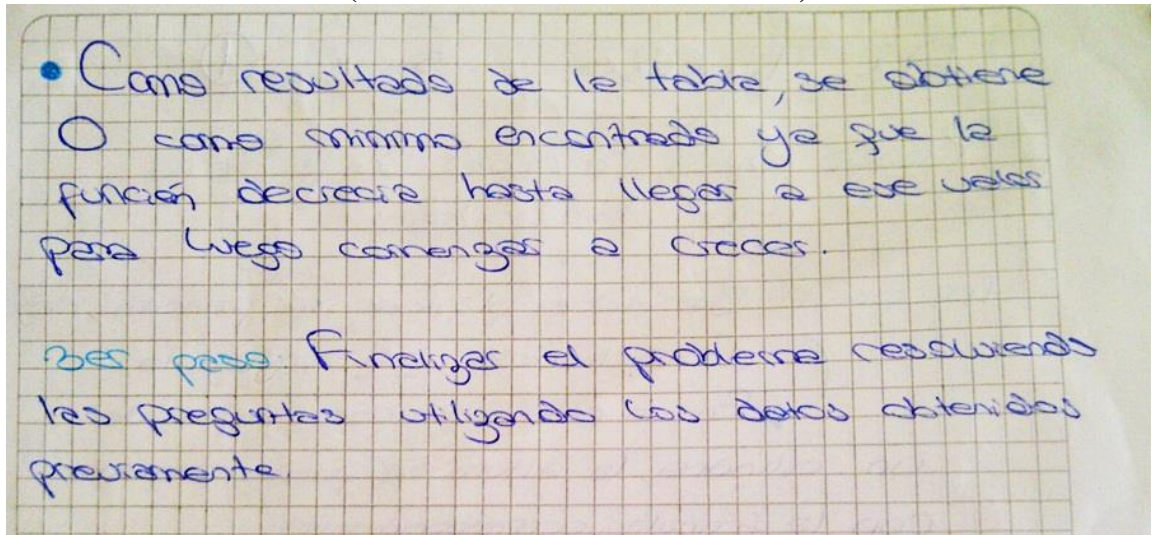 • Como resultado de la tabla, se obtiene
0 como mínimo encontrado ya que la
función decrecia hasta llegar a ese valor
para luego comenzar a crecer.
3er paso. Finalizar el problema resolviendo
las preguntas utilizando los datos obtenidos
previamente.